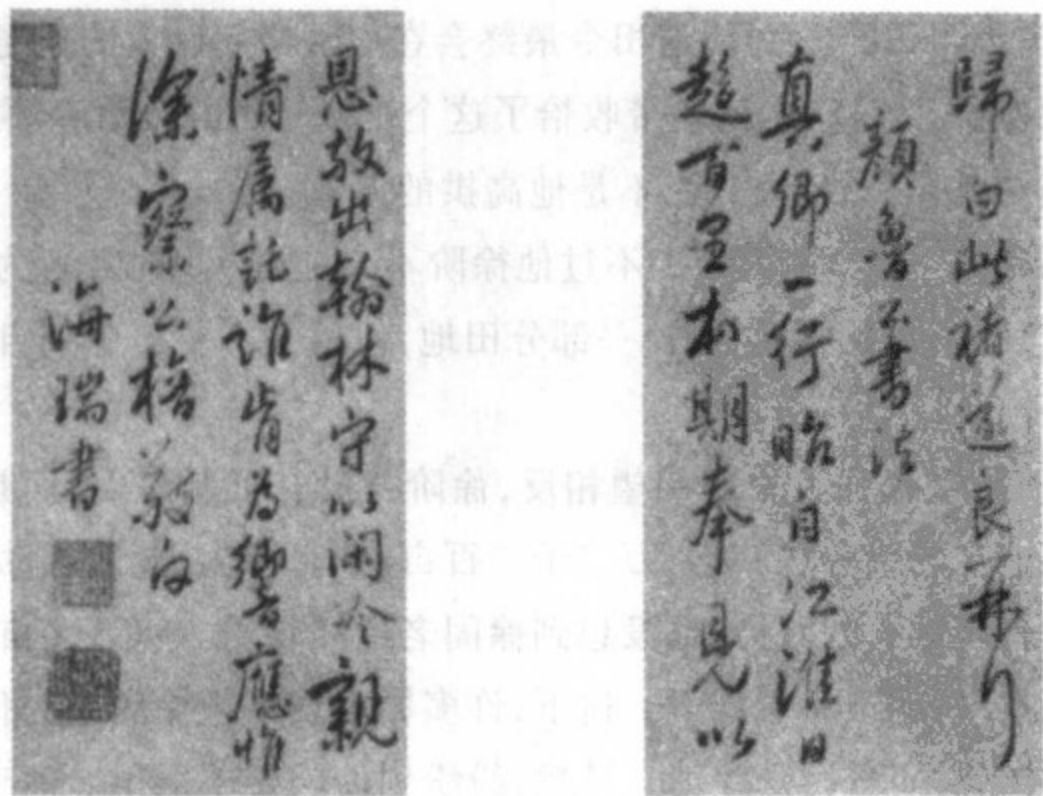 歸曰此褚遂良
顏魯公書法
真卿一行自江淮日
趨百里本期奉見以
恩放出翰林守以閑冷親
情屬託誰肯為響應惟
深察公權敬白
海瑞書